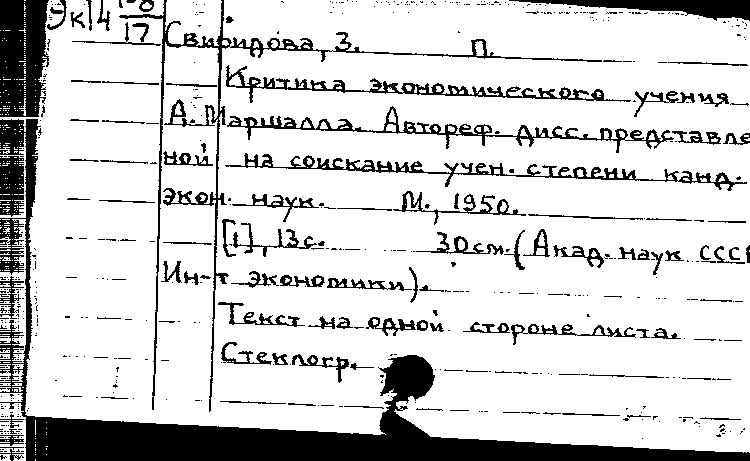 Эк14
17
Свиридова, З. П.
Критика экономического учения
А. Маршалла. Автореф. дисс. представле
ной на соискание учен. степени канд.
экон. наук. М., 1950.
[1], 13с. 30см. (Акад. наук СССР
Ин-т экономики).
Текст на одной стороне листа.
Стеклогр.